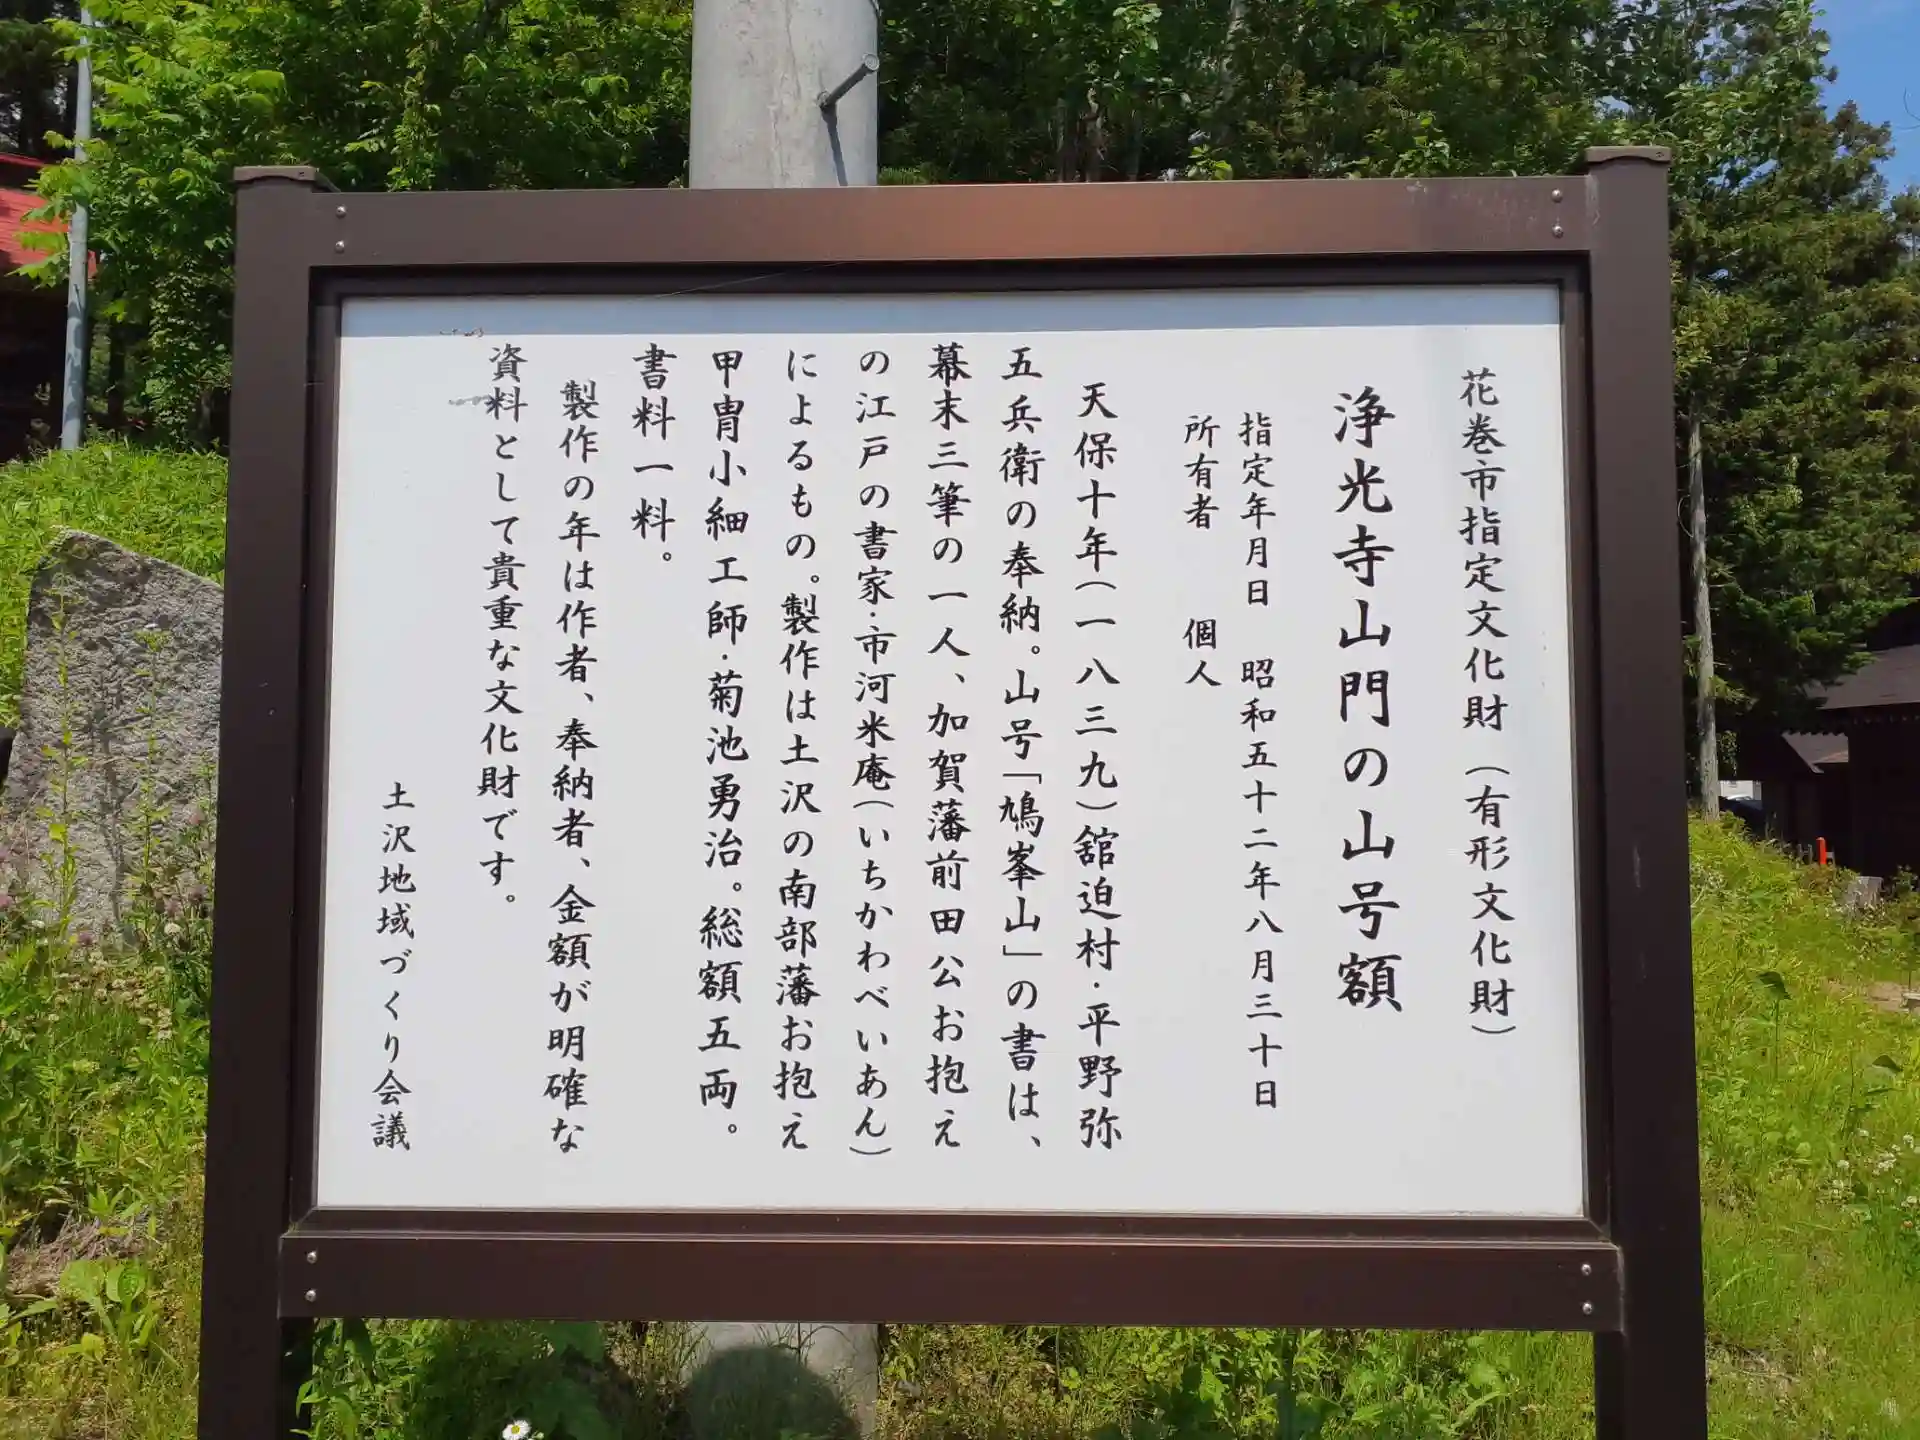 花巻市指定文化財（有形文化財）
浄光寺山門の山号額
指定年月日　昭和五十二年八月三十日
所有者　個人
天保十年（一八三九）舘迫村・平野弥
五兵衛の奉納。山号「鳩峯山」の書は、
幕末三筆の一人、加賀藩前田公お抱え
の江戸の書家・市河米庵（いちかわべいあん）
によるもの。製作は土沢の南部藩お抱え
甲冑小細工師・菊池勇治。総額五両。
書料一料。
製作の年は作者、奉納者、金額が明確な
資料として貴重な文化財です。
土沢地域づくり会議